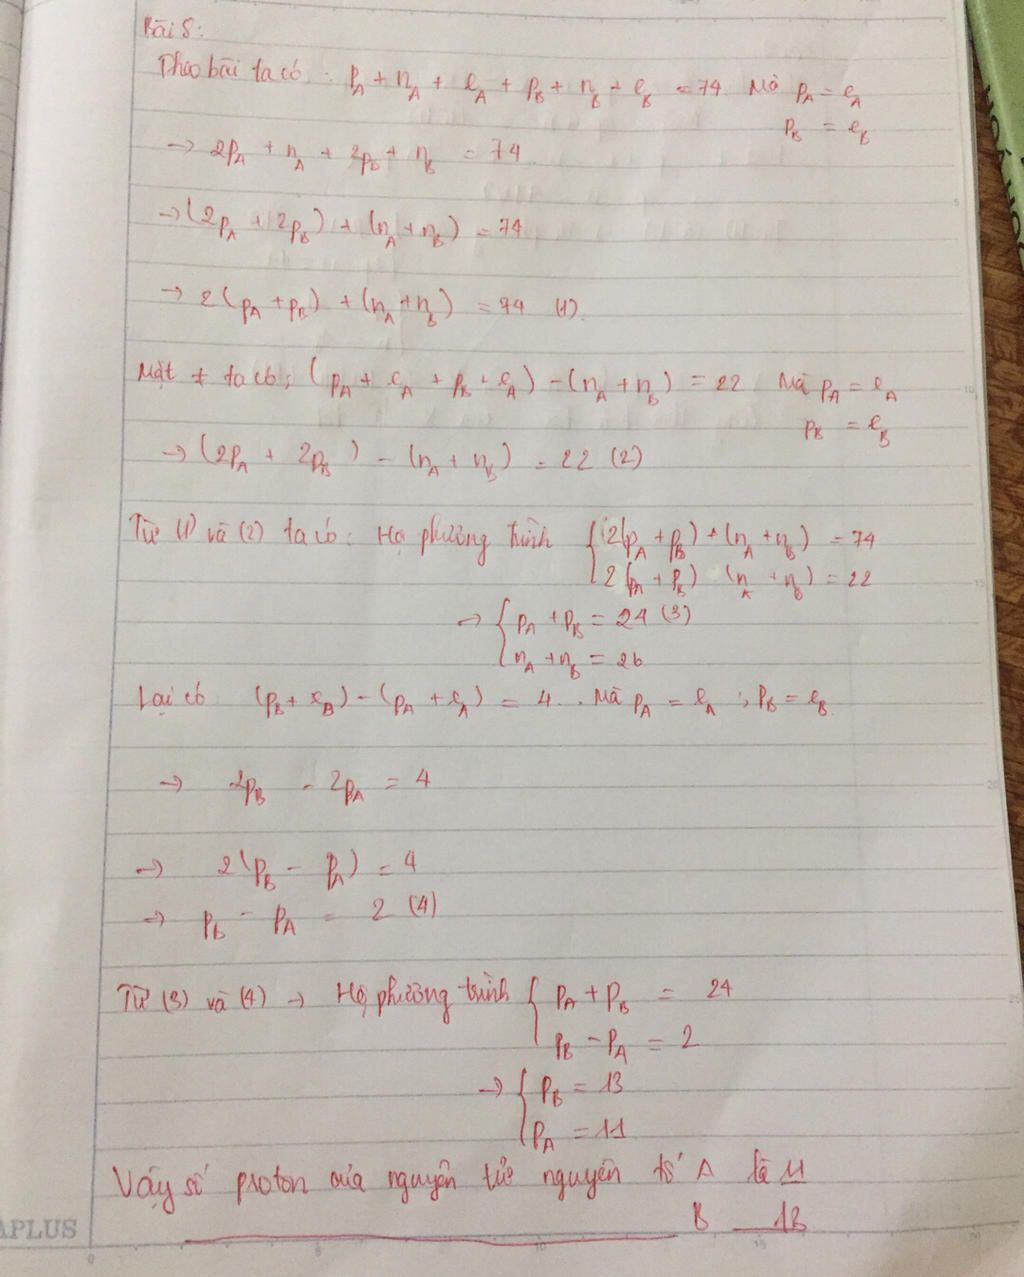 Bài 8:
Theo bài ta có: pA + nA + eA + pB + nB + eB = 74. Mà pA = eA
pB = eB
→ 2pA + nA + 2pB + nB = 74
→ (2pA + 2pB) + (nA + nB) = 74
→ 2(pA + pB) + (nA + nB) = 74 (1).
Mặt ≠ ta có: (pA + eA + pB + eA) - (nA + nB) = 22 Mà pA = eA
pB = eB
→ (2pA + 2pB) - (nA + nB) = 22 (2)
Từ (1) và (2) ta có: Hệ phương trình { 2(pA + pB) + (nA + nB) = 74
2(pA + pB) (nA + nB) = 22
→ { pA + pB = 24 (3)
nA + nB = 26
Lại có (pB + eB) - (pA + eA) = 4. Mà pA = eA ; pB = eB.
→ 2pB - 2pA = 4
→ 2(pB - pA) = 4
→ pB - pA = 2 (4)
Từ (3) và (4) → Hệ phương trình { pA + pB = 24
pB - pA = 2
→ { pB = 13
pA = 11
Vậy số proton của nguyên tử nguyên tố A là 11
B __ 13
APLUS